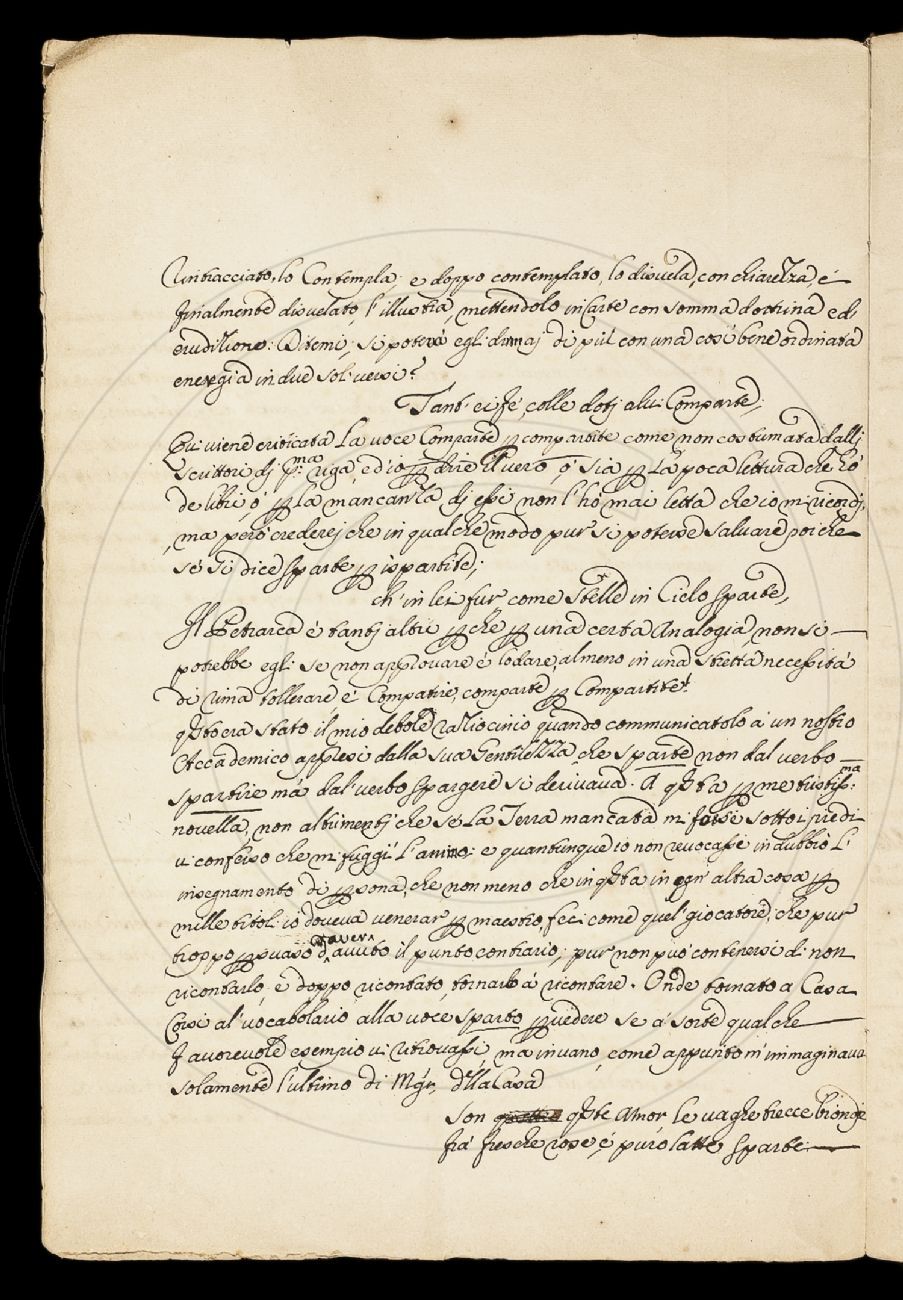 rintracciato, lo Contempla; e doppo contemplato, lo disuela, con chiarezza, é
finalmente disuelato, l'illustra, mettendolo in Carte con somma dottrina e di
erudizione: Ditemi; si poteva egli dir maj di più con una così bene ordinata
energia in due soli versi?
Tant' ei fé, colle dotj altri Comparte;
Qui viene criticata La voce Comparte p comparite come non costumata dallj
scrittori dj p.ma riga, ed io p dire il vero, ó sia p La poca lettura che hó
de libri, ó p La mancanza dj essi non l'hó mai letta che io mi ricordj,
ma però crederej che in qualche modo pur si potesse salvare poiche
sé si dice sparte p ispartite;
ch' in lei fur come stelle in Cielo sparte,
Il Petrarca é tantj altri p che p una certa Analogia, non si
potrebbe egli se non approuare é lodare, almeno in una stretta necessità
di rima tollerare, é Compatire, comparte p Compartite!
qsto era stato il mio debole raziocinio quando communicatolo á un nostro
Accademico appresi dalla sua Gentilezza che sparte non dal verbo
spartire má dal verbo spargere si deriuaua. A qsta p me tristiss:ma
novella, non altrimentj che sé La Terra mancata mi fosse sotto i piedi
vi confesso che mi fuggí l'animo: e quantunque io non reuocassi in dubbio l'
insegnamento di psona, che non meno che in qsta in ogn' altra cosa p
mille titoli io doueua venerar p maestro, feci come quel giocatore, che pur
troppo psuaso d'auer auuto il punto contrario; pur non puó contenersi di non
ricontarlo, e doppo ricontato, tornarlo á ricontare. Onde tornato a Casa
Corsi al vocabolario alla voce sparto p uedere se á sorte qualche
fauoreuole esempio ui ritrouassi, ma inuano, come appunto m'immaginaua
solamente l'ultimo di Mgr. dlla Casa
Son qste Amor le vaghe trecce bionde
frá fresche rose, é puro latte sparte.